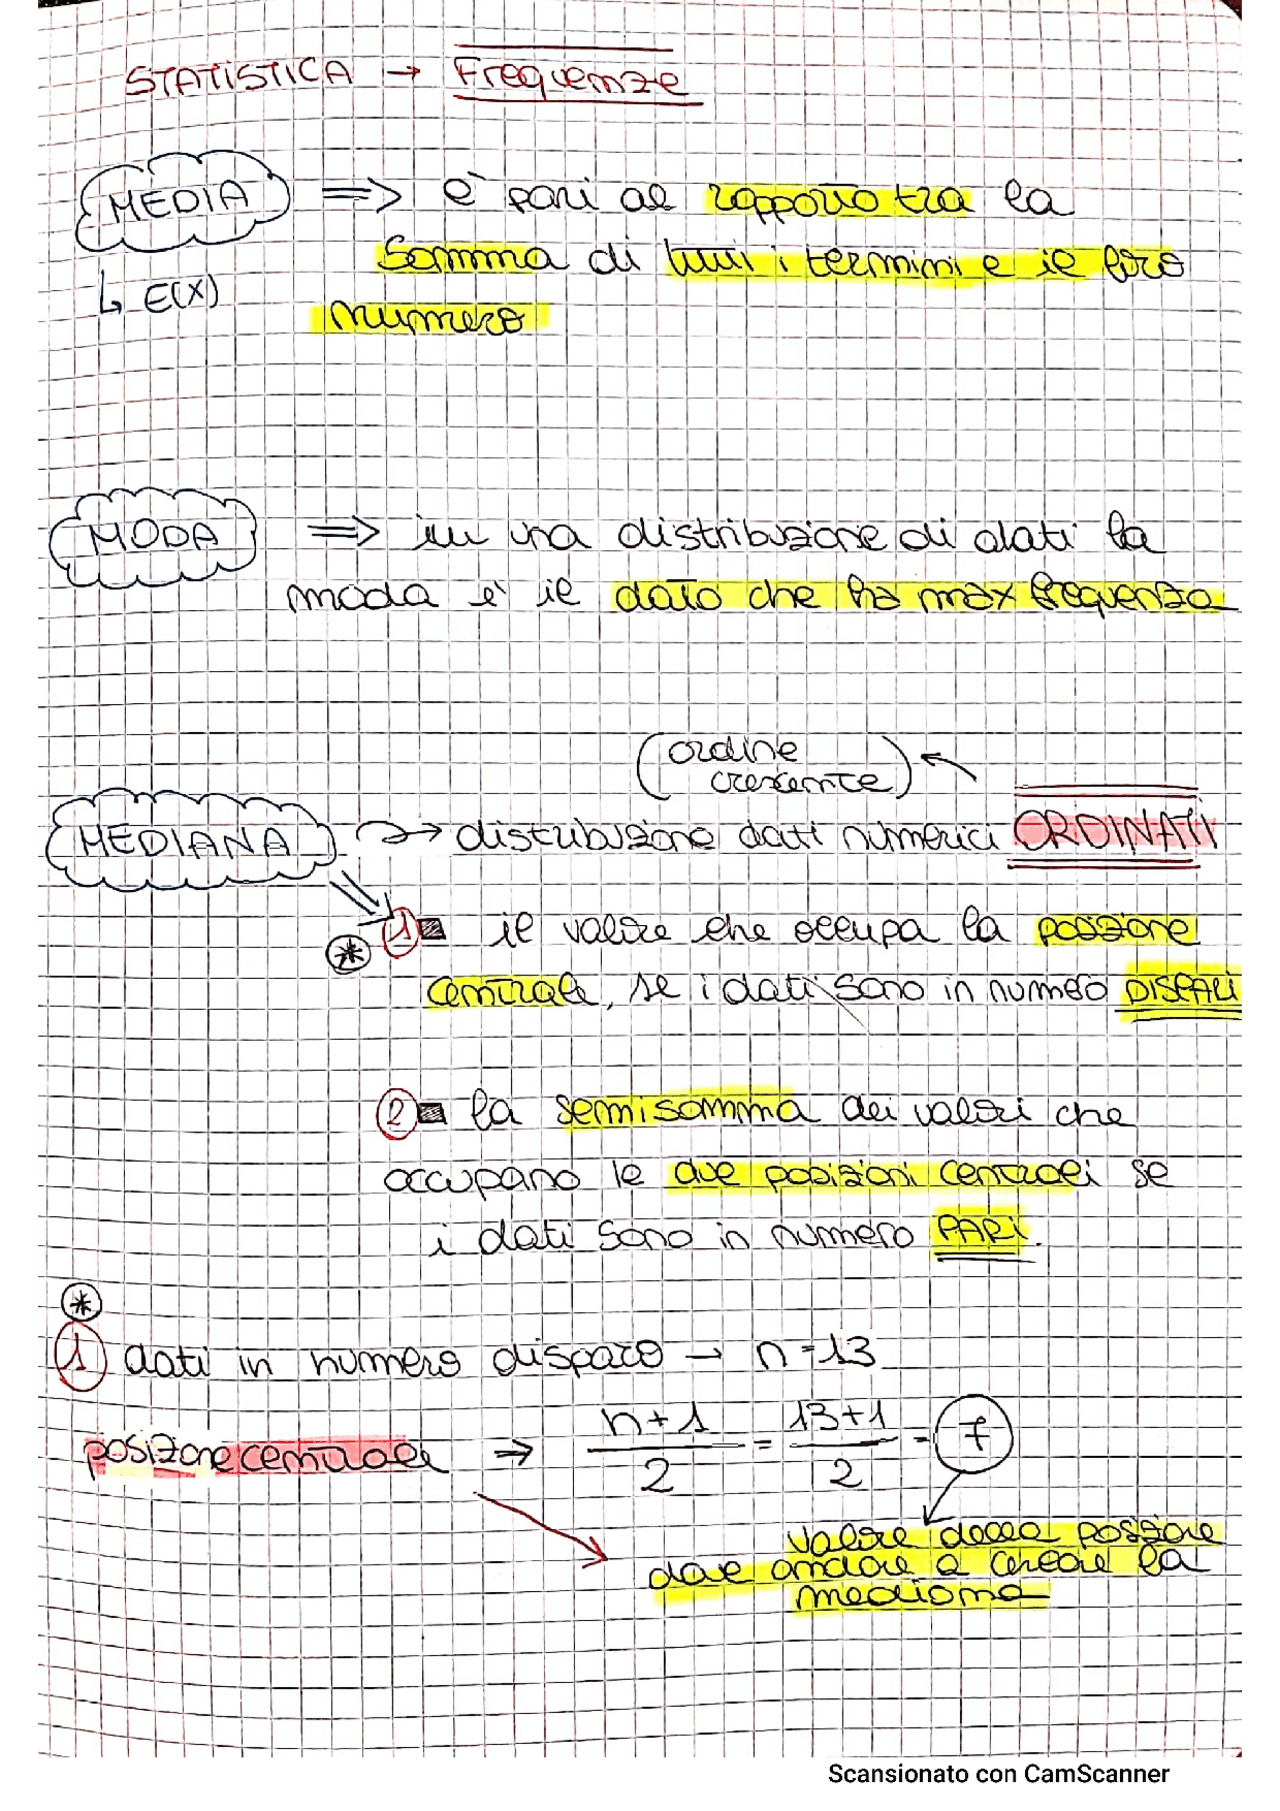 STATISTICA → Frequenze
MEDIA => è pari al rapporto tra la
somma di tutti i termini e il loro
↳ E(X)
numero
MODA => in una distribuzione di dati la
moda è il dato che ha max frequenza
(ordine
crescente)
MEDIANA → distribuzione dati numerici ORDINATI
1 il valore che occupa la posizione
*
centrale, se i dati sono in numero DISPARI
2 la semisomma dei valori che
occupano le due posizioni centrali se
i dati sono in numero PARI.
*
1 dati in numero disparo → n=13
posizione centrale => n+1/2 = 13+1/2 = 7
valore della posizione
dove andare a cercare la
mediana
Scansionato con CamScanner